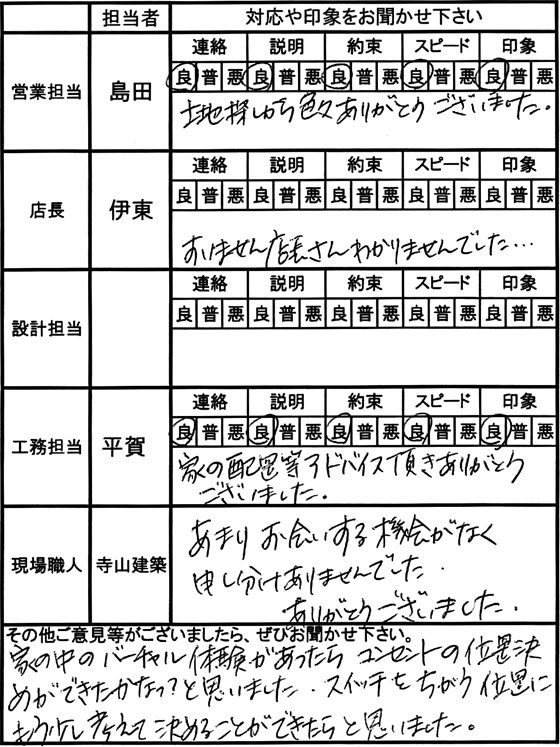 担当者 対応や印象をお聞かせ下さい
営業担当 島田
連絡 説明 約束 スピード 印象
良 普 悪 良 普 悪 良 普 悪 良 普 悪 良 普 悪
土地探しから色々ありがとうございました。
店長 伊東
連絡 説明 約束 スピード 印象
良 普 悪 良 普 悪 良 普 悪 良 普 悪 良 普 悪
すいません店長さんわかりませんでした…
設計担当
連絡 説明 約束 スピード 印象
良 普 悪 良 普 悪 良 普 悪 良 普 悪 良 普 悪
工務担当 平賀
連絡 説明 約束 スピード 印象
良 普 悪 良 普 悪 良 普 悪 良 普 悪 良 普 悪
家の配置等アドバイス頂きありがとう
ございました。
現場職人 寺山建築
あまりお会いする機会がなく
申し分けありませんでした.
ありがとうございました.
その他ご意見等がございましたら、ぜひお聞かせ下さい。
家の中のバーチャル体験があったらコンセントの位置決
めができたかなっ?と思いました.スイッチをちがう位置に
もう少し考えて決めることができたらと思いました。